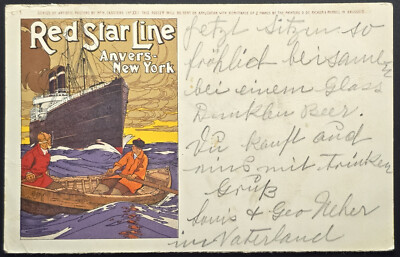 Red Star Line
Anvers-
New York
Jetzt sitzen so
fröhlich beisammen
bei einem Glass
Dunklen Beer.
Du kanst and
uns mit trinken
Gruß
Louis & Geo
im Vaterland